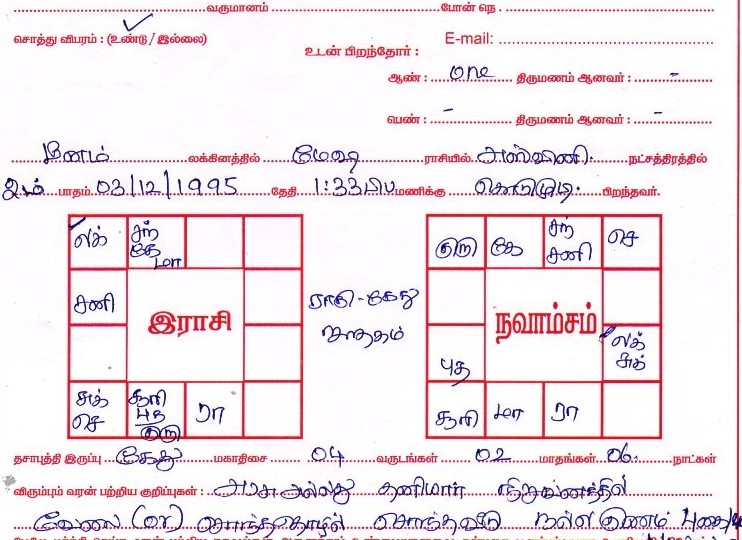 வருமானம் போன் நெ .
சொத்து விபரம் : (உண்டு / இல்லை) உடன் பிறந்தோர் : E-mail:
ஆண் : one திருமணம் ஆனவர் : -
பெண் : - திருமணம் ஆனவர் : -
மீனம் லக்கினத்தில் மேஷ ராசியில் அஸ்வினி நட்சத்திரத்தில்
2ம் பாதம் 03/12/1995 தேதி 1:33 பிப மணிக்கு கொடுமுடி பிறந்தவர்.
லக் சந் கே மா
சனி
இராசி
சுக் செ சூரி புத குரு ரா
ராகு - கேது ஜாதகம்
குரு கே சந் சனி செ
நவாம்சம்
புத லக் சுக்
சூரி மா ரா
தசாபுத்தி இருப்பு கேது மகாதிசை 04 வருடங்கள் 02 மாதங்கள் 06 நாட்கள்
விரும்பும் வரன் பற்றிய குறிப்புகள் : அரசு அல்லது தனியார் நிறுவனத்தில்
வேலை (or) சொந்ததொழில் சொந்தவீடு நல்ல குணம்